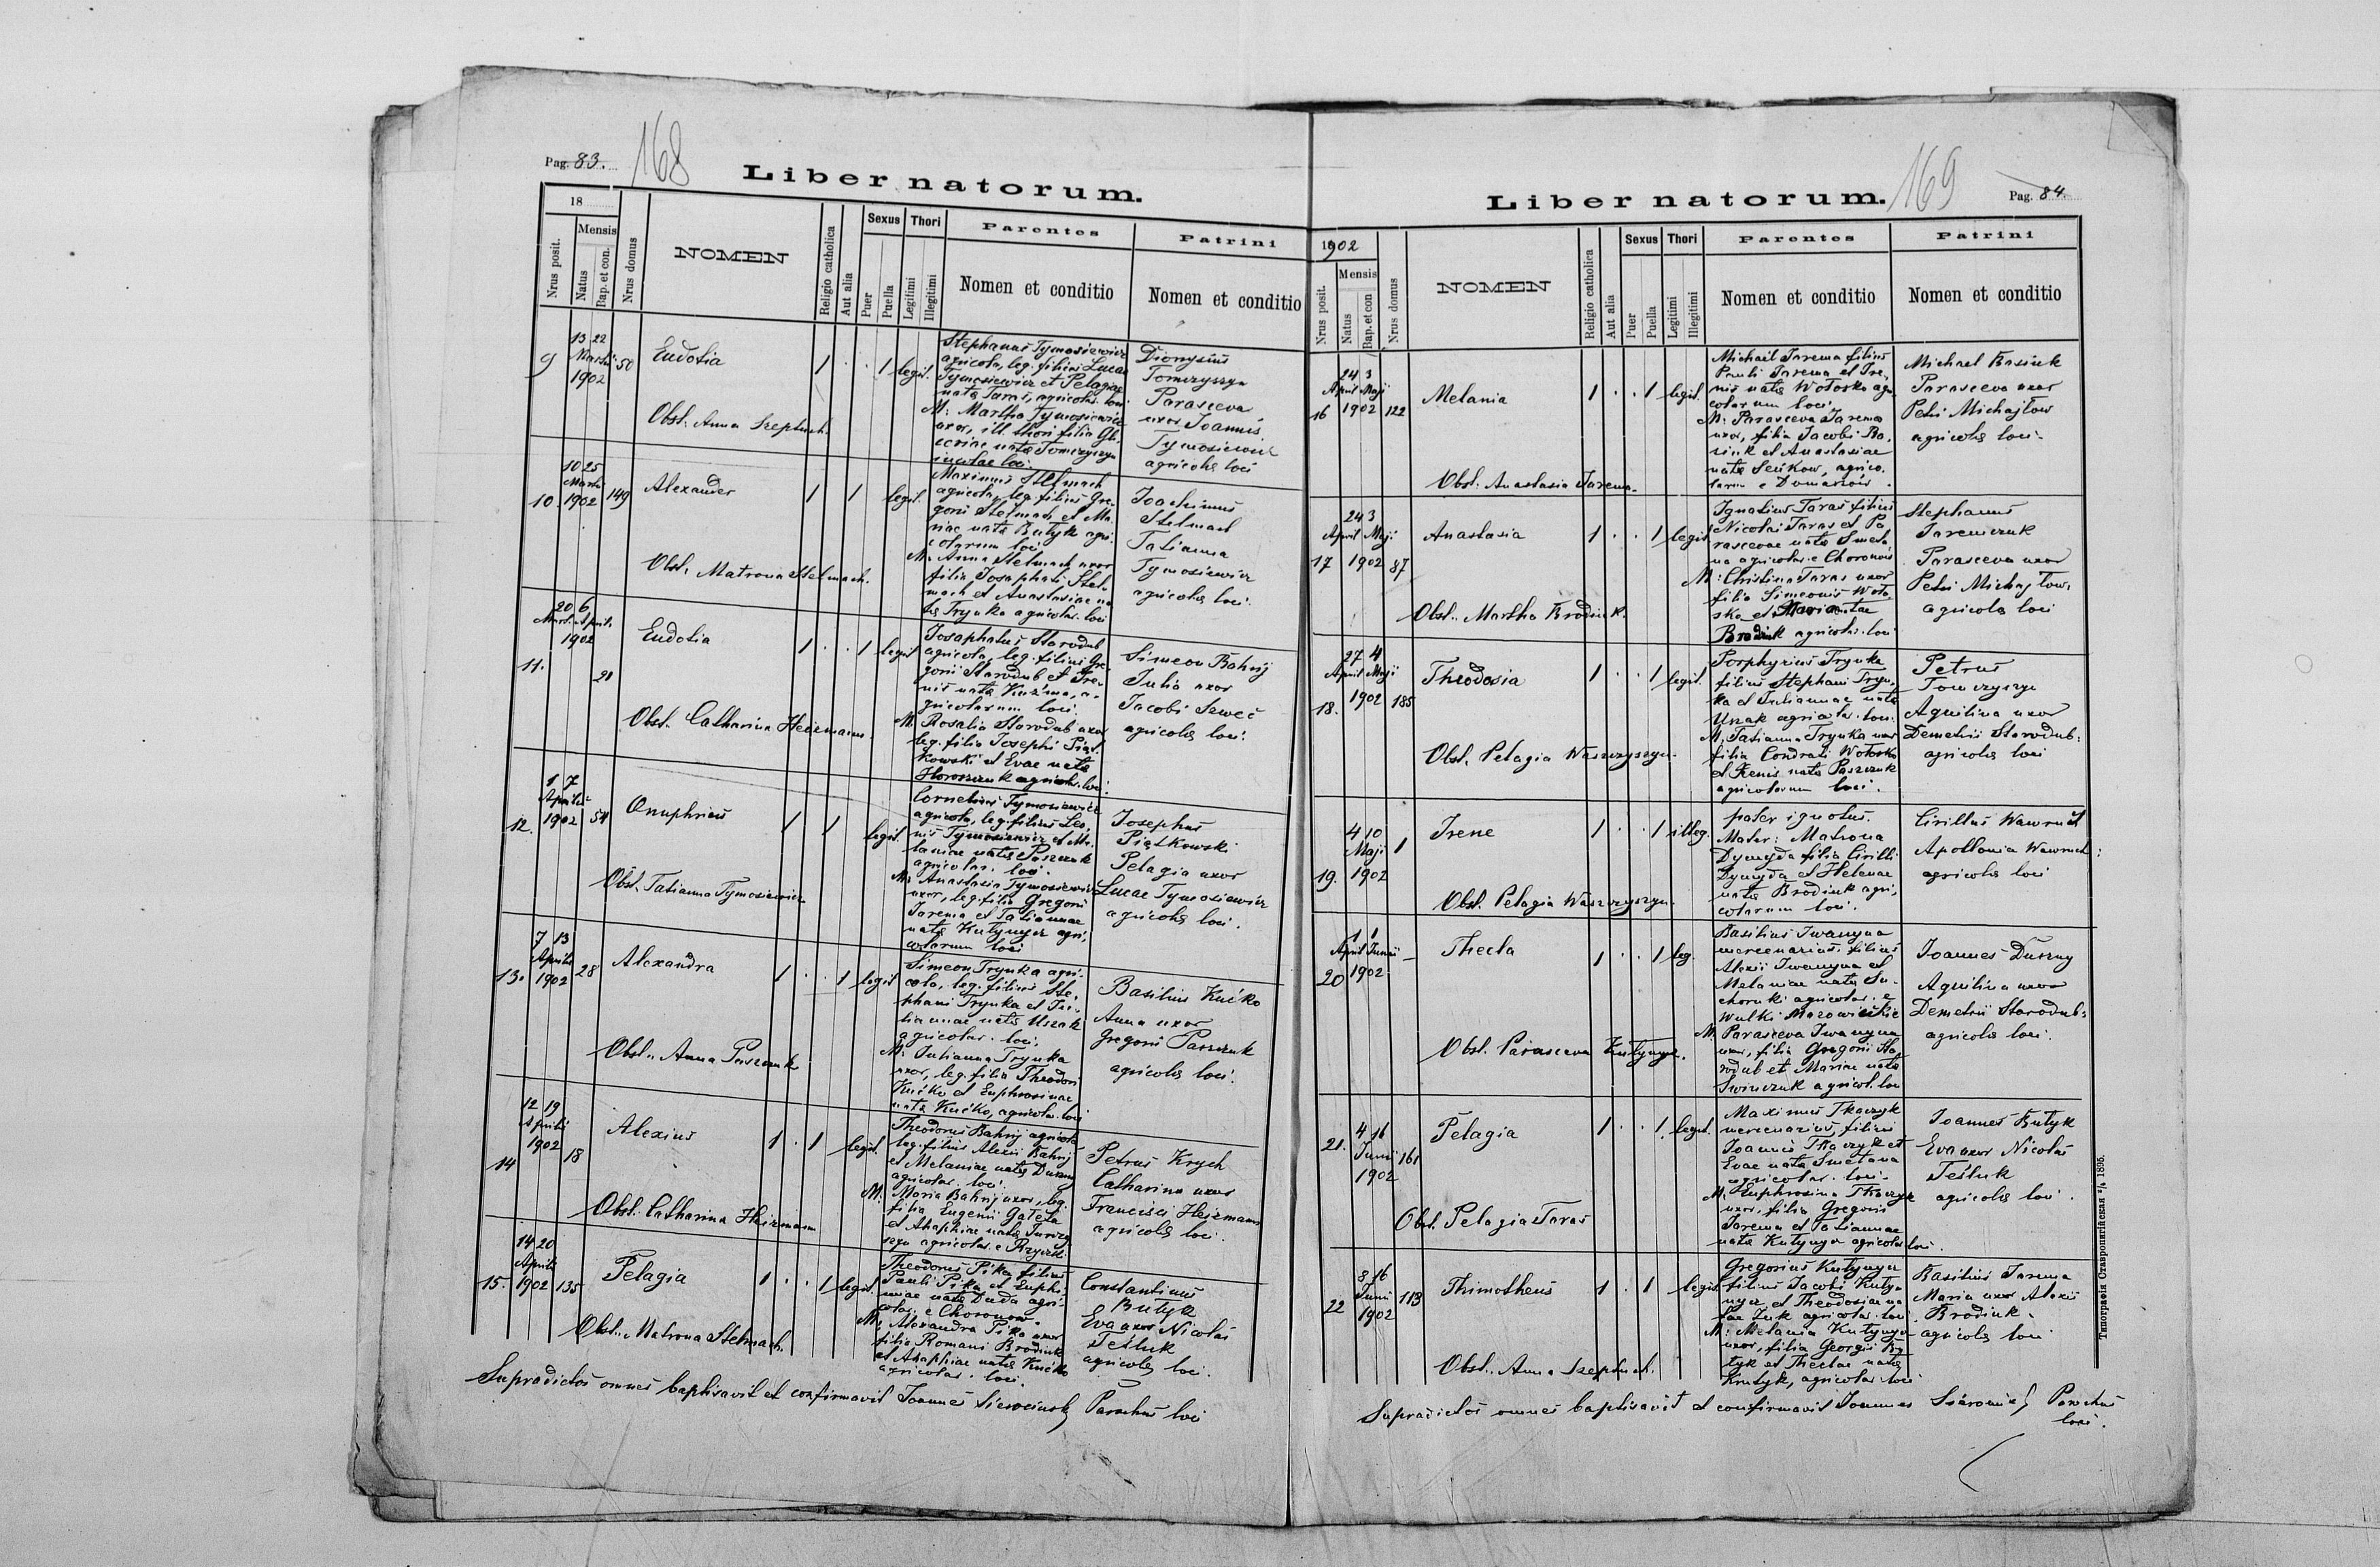 Pag. 83.
168
Liber natorum.
18
Nrus posit.
Mensis
Natus
Bap. et con.
Nrus domus
NOMEN
Religio catholica
Aut alia
Sexus
Puer
Puella
Thori
Legitimi
Illegitimi
Parentes
Nomen et conditio
Patrini
Nomen et conditio
9
13 22
Martii
1902
50
Eudotia
Obst. Anna Szeptuch.
1 . . 1 legit.
Stephanus Tymosiewicz
agricola, leg. filius Lucae
Tymosiewicz et Pelagiae
nata Taras, agricolar. loci
M: Martha Tymosiewicz
uxor, ill. thori filia
nata Tomczyszyn
loci.
Dionysius
Tomczyszyn
Parasceva
uxor Joannis
Tymosiewicz
agricolae loci
10.
10 25
Martii
1902
149
Alexander
Obst. Matrona Stelmach.
1 1 legit.
Maximus Stelmach
agricola, leg. filius Gre-
gorii Stelmach et Ma-
riae nata Butyk agri-
colarum loci
M. Anna Stelmach uxor
filia Josaphati Stel-
mach et Anastasiae na-
ta Trynka agricolar. loci
Joachimus
Stelmach
Tatianna
Tymosiewicz
agricolae loci.
11.
20 6
Mart. Aprili
1902
Eudotia
Obst. Catharina Heizmann.
1 . . 1 legit
Josaphatus Starodub
agricola, leg. filius Gre-
gorii Starodub et Ire-
nis nata Kuzma, a-
gricolarum loci.
M. Rosalia Starodub uxor
leg. filia Josephi Piąt-
kowski et Evae nata
Horoszczuk agricolar. loci.
Simeon Bahrij
Julia uxor
Jacobi Szweć
agricolae loci.
12.
1 7
Aprilis
1902
54
Onuphrius
Obst. Tatianna Tymosiewicz
1 1 legit.
Cornelius Tymosiewicz
agricola, leg. filius Leo-
nis Tymosiewicz et Me-
laniae nata Paszczuk
agricolar. loci.
M. Anastasia Tymosiewicz
uxor, leg. filia Gregorii
Jarema et Tatiannae
nata Kutynyer agri-
colarum loci
Josephus
Piątkowski
Pelagia uxor
Lucae Tymosiewicz
agricolae loci.
13.
7 13
Aprilis
1902
28
Alexandra
Obst. Anna Paszczuk
1 . . 1 legit
Simeon Trynka agri-
cola, leg. filius Ste-
phani Trynka et Ju-
liannae nata Uszak
agricolar. loci.
M. Julianna Trynka
uxor, leg. filia Theodori
Kućko et Euphrosinae
nata Kućko, agricolar. loci
Basilius Kućko
Anna uxor
Gregorii Paszczuk
agricolae loci.
14
12 19
Aprilis
1902
18
Alexius
Obst. Catharina Heizmann
1 . 1 legit.
Theodorus Bahrij agricola
leg. filius Alexii Bahrij
et Melaniae nata Duszny
agricolar. loci.
M. Maria Bahrij uxor, leg.
filia Eugenii Gałeża
et Ahaphiae nata
agricolar. e
Petrus Krych
Catharina uxor
Francisci Heizmann
agricolae loci.
15.
14 20
Aprilis
1902
135
Pelagia
Obst. Matrona Stelmach.
1 . . 1 legit.
Theodorus Pika filius
Pauli Pika et Euphe-
miae nata Duda agri-
colar. e Choronow.
M. Alexandra Pika uxor
filia Romani Brodiuk
et Ahaphiae nata Kućko
agricolar. loci.
Constantinus
Butyk
Eva uxor Nicolai
Teśluk
agricolae loci.
Supradictos omnes baptisavit et confirmavit Joannes Parochus loci
Liber natorum.
169
Pag. 84.
1902
Nrus posit.
Mensis
Natus
Bap. et con
Nrus domus
NOMEN
Religio catholica
Aut alia
Sexus
Puer
Puella
Thori
Legitimi
Illegitimi
Parentes
Nomen et conditio
Patrini
Nomen et conditio
16
24 3
April Maji
1902
122
Melania
Obst. Anastasia Jarema.
1 . . 1 legit.
Michael Jarema filius
Pauli Jarema et Ire-
nis nata Wołoska agri-
colarum loci.
M: Parasceva Jarema
uxor, filia Jacobi Ba-
siuk et Anastasiae
nata Senkow, agrico-
larum e Domaszow.
Michael Basiuk
Parasceva uxor
Petri Michajłow
agricolae loci.
17
24 3
April Maji
1902
87
Anastasia
Obst. Martha Brodiuk.
1 . . 1 legit
Ignatius Taras filius
Nicolai Taras et Pa-
rascevae nata Smeta-
na agricolar. e Choronow
M: Christina Taras uxor
filia Simeonis Woło-
ska et Mariae natae
Brodiuk agricolar. loci
Stephanus
Jaremczuk
Parasceva uxor
Petri Michajłow
agricolae loci
18.
27 4
April Maji
1902
185
Theodosia
Obst. Pelagia Waszczyszyn.
1 . . 1 legit.
Porphyrius Trynka
filius Stephani Tryn-
ka et Juliannae nata
Uszak agricolar. loci.
M. Tatianna Trynka uxor
filia Condrati Wołoska
et Xenis nata Paszczuk
agricolarum loci.
Petrus
Tomczyszyn
Aquilina uxor
Demetrii Starodub:
agricolae loci
19.
4 10
Maji
1902
1
Irene
Obst. Pelagia Waszczyszyn.
1 . . 1 illeg.
pater ignotus.
Mater: Matrona
Dymyda filia Cirilli
Dymyda et Helenae
nata Brodiuk agri-
colarum loci.
Cirillus Wawruch
Apollonia Wawruch:
agricolae loci
20
1 1
April Junii
1902
–
Thecla
Obst. Parasceva Kutynyer.
1 . . 1 leg.
Basilius Iwanyna
mercenarius, filius
Alexii Iwanyna et
Melaniae nata Su-
choruki agricolar. e
Wulki Mazowieckie
M. Parasceva Iwanyna
uxor, filia Gregorii Sta-
rodub et Mariae nata
Swinczuk agricol. loci
Joannes Duszny
Aquilina uxor
Demetrii Starodub:
agricolae loci.
21.
4 16
Junii
1902
161
Pelagia
Obst. Pelagia Taras
1 . . 1 legit.
Maximus Tkaczyk
mercenarius, filius
Joannis Tkaczyk et
Evae nata Smetana
agricolar. loci.
M. Euphrosina Tkaczyk
uxor, filia Gregorii
Jarema et Tatiannae
nata Kutynyer agricolar. loci.
Joannes Butyk
Eva uxor Nicolai
Teśluk
agricolae loci.
22
8 16
Junii
1902
113
Thimotheus
Obst. Anna Szeptuch.
1 . 1 legit
Gregorius Kutynyer
filius Jacobi Kuty-
nyer et Theodosiae na-
tae Żuk agricolar. loci.
M: Melania Kutynyer
uxor, filia Georgii Bu-
tyk et Theclae nata
Krutyk, agricolar. loci
Basilius Jarema
Maria uxor Alexii
Brodiuk
agricolae loci
Supradictos omnes baptisavit et confirmavit Joannes Parochus
loci.
Типографія Ставропигійская 1895.